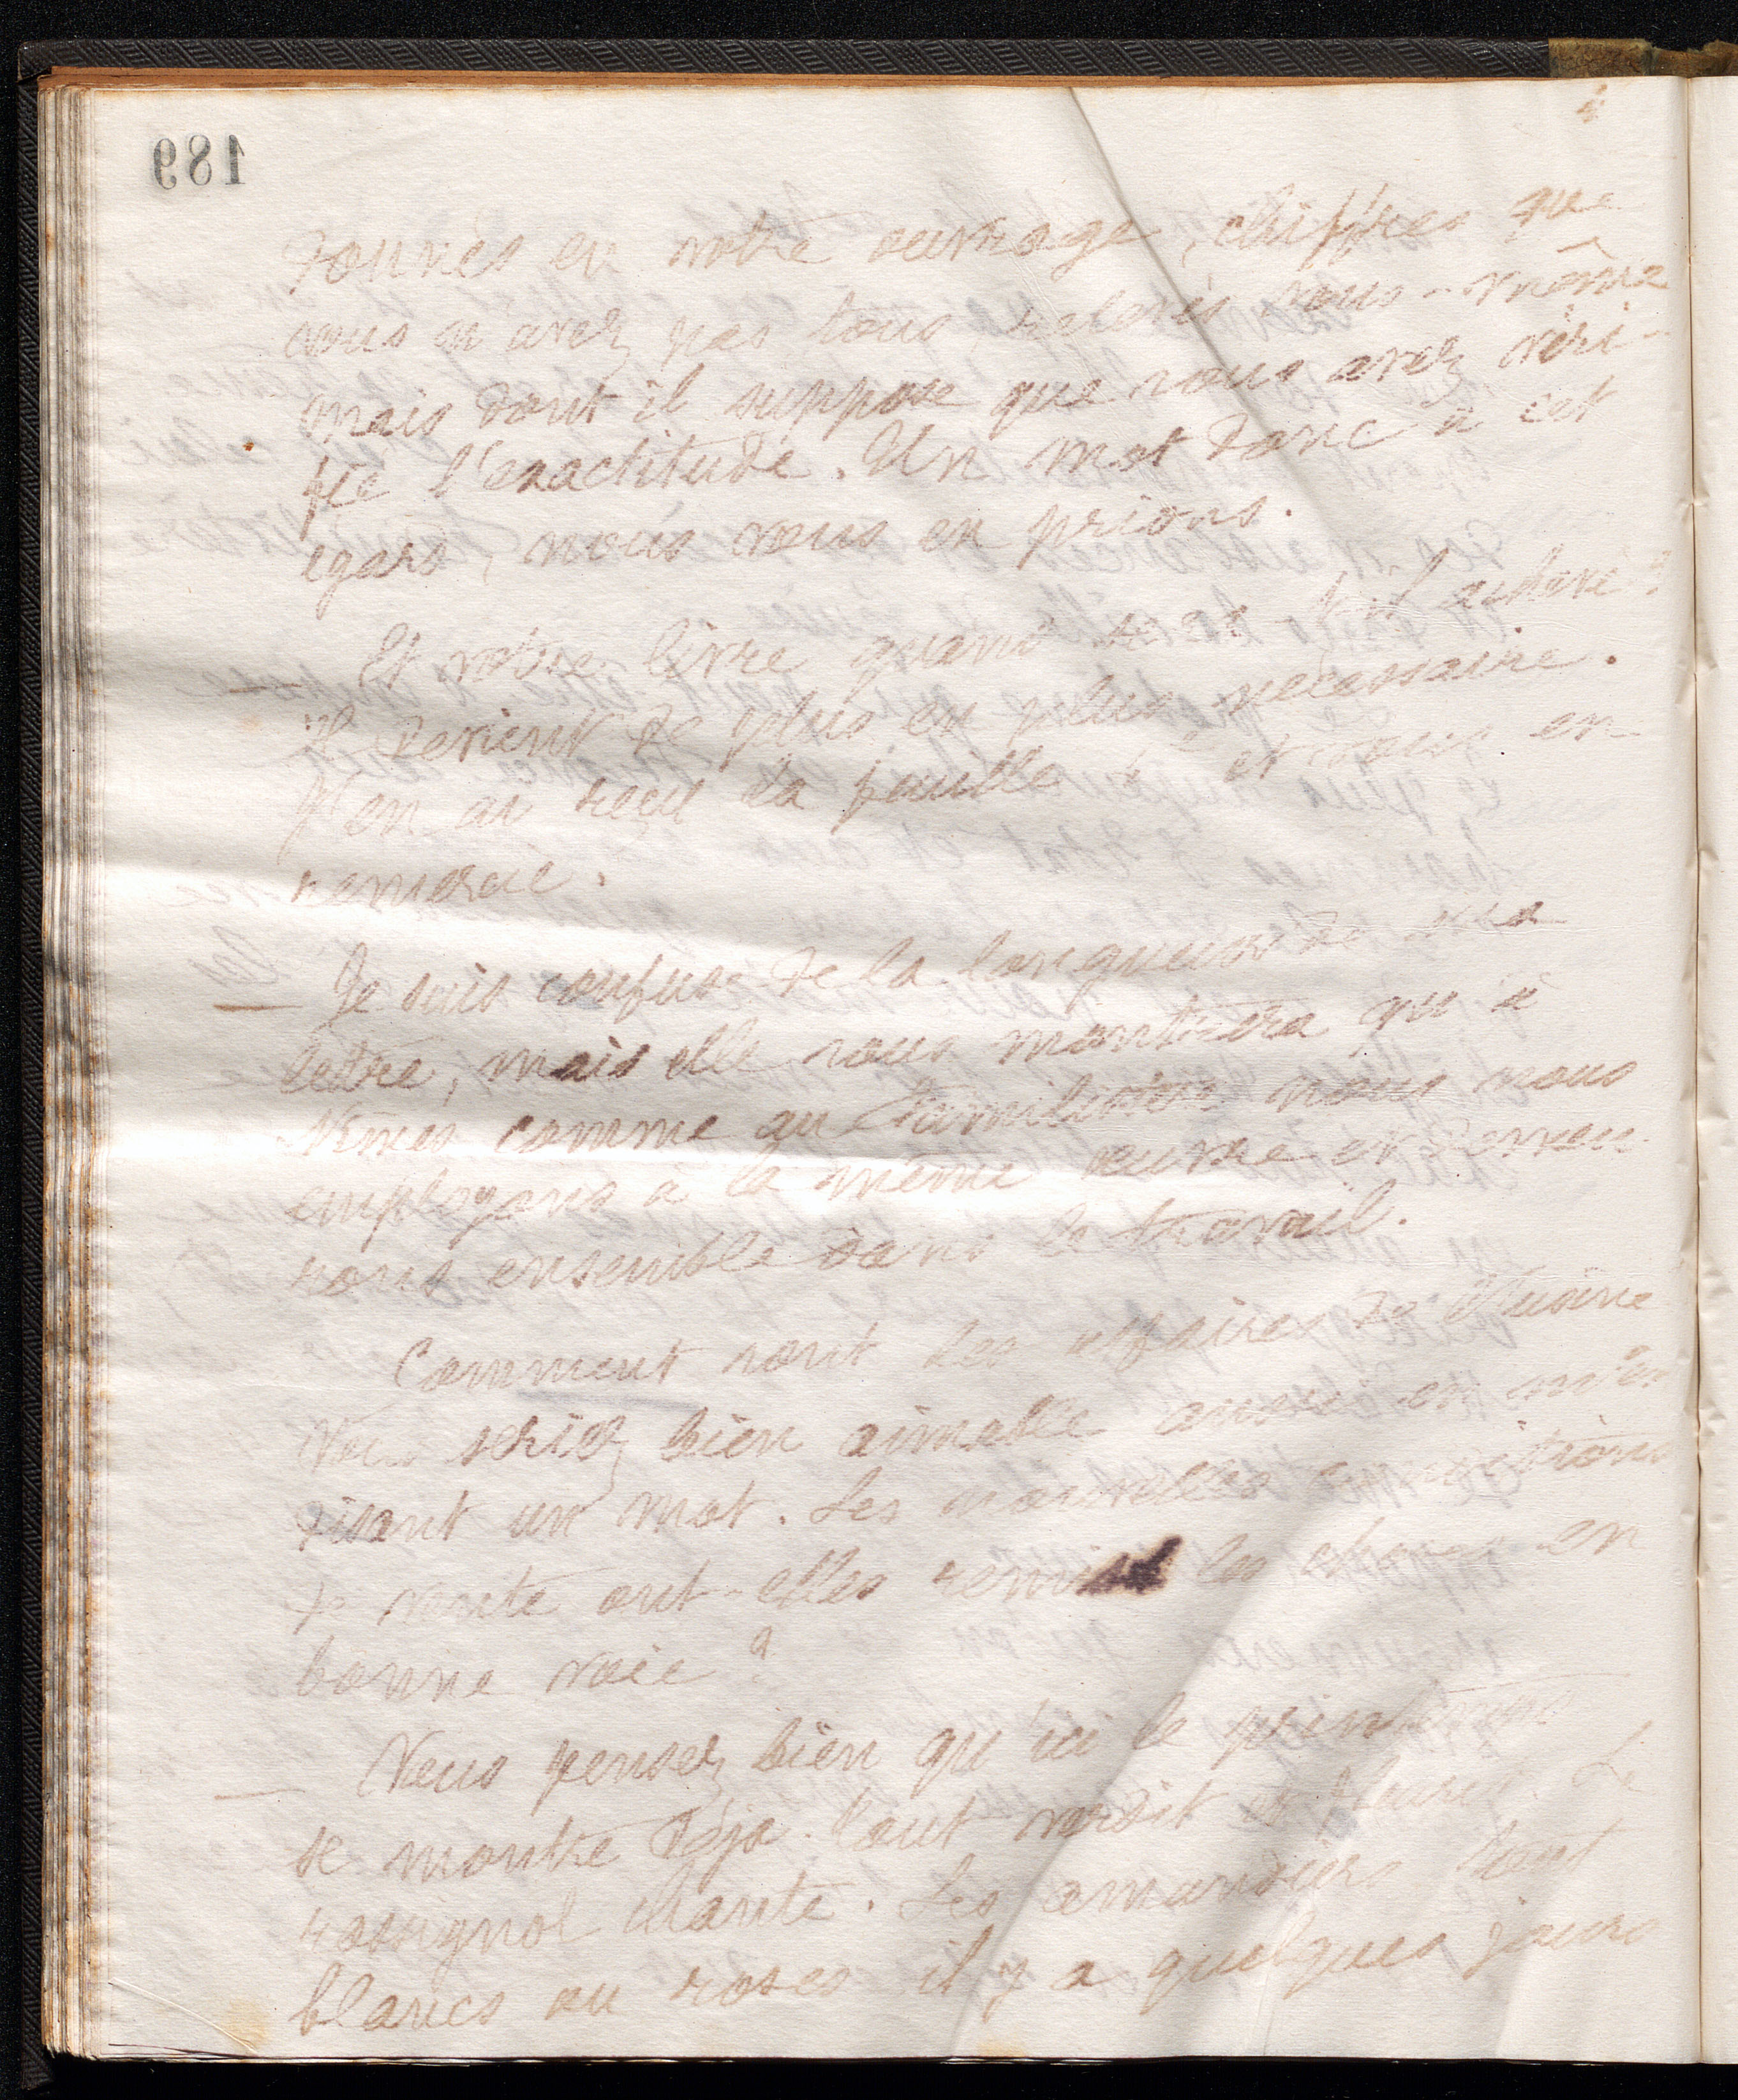 189
4
donnés en votre ouvrage, chiffres que
vous n'avez pas tous relevés vous-même
mais dont il suppose que vous avez véri-
fié l'exactitude. Un mot donc à cet
égard, nous vous en prions.
— Et votre livre quand sera-t-il achevé ?
Il devient de plus en plus nécessaire.
J'en ai reçu la feuille et vous en
remercie.
— Je suis confuse de la longueur de ma
lettre, mais elle vous montrera qu'à
Nîmes comme au Familistère nous nous
employons à la même œuvre et demeu-
rons ensemble dans le travail.
Comment vont les affaires de l'Usine
Vous seriez bien aimable aussi en m'en
disant un mot. Les nouvelles conditions
de vente ont-elles remis les choses en
bonne voie ?
— Vous pensez bien qu'ici le printemps
se montre déjà. Tout verdit et fleurit. Le
rossignol chante. Les amandiers tout
blancs ou roses il y a quelques jours